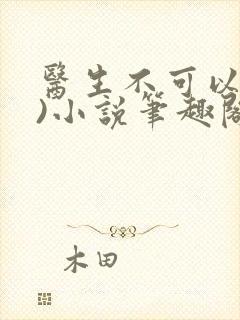 醫生不可以
)小說筆趣閣
木田